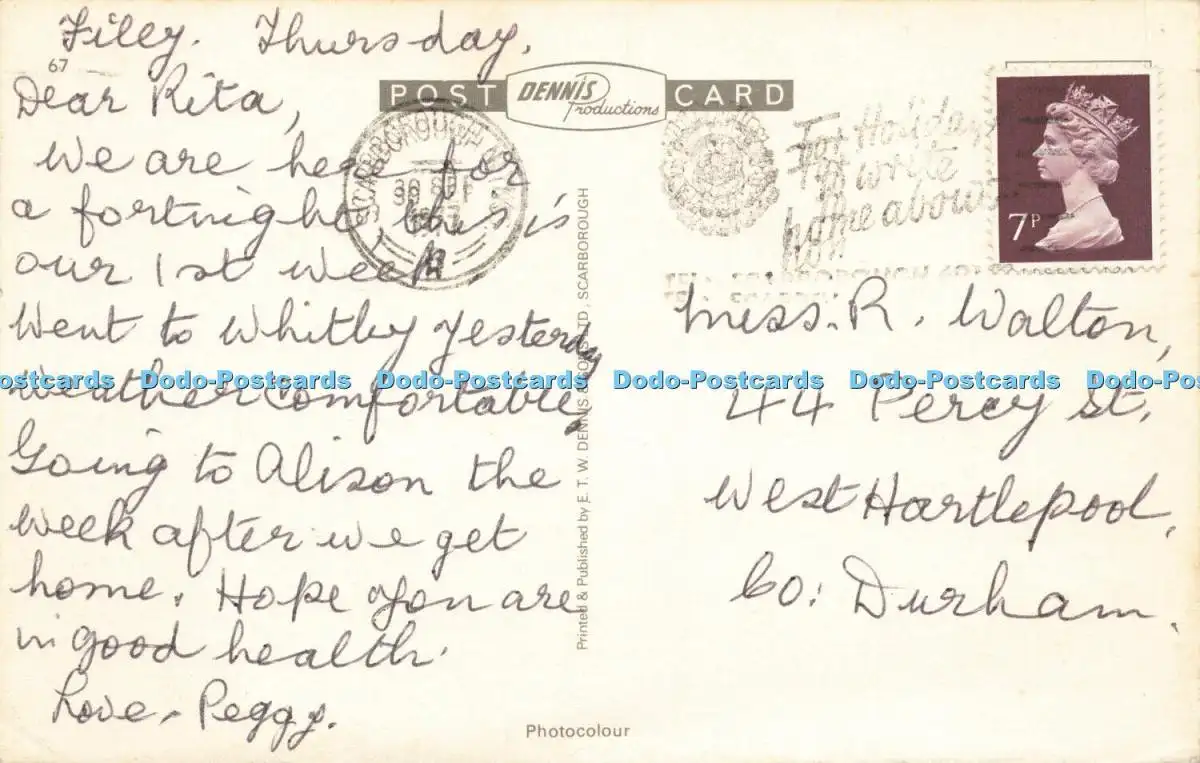 Filey. Thursday,
67
Dear Rita,
We are here for
a fortnight, this is
our 1st week
Went to Whitby yesterday
Weather comfortable,
Going to Alison the
week after we get
home. Hope you are
in good health.
Love, Peggy.
POST DENNIS Productions CARD
SCARBOROUGH
SEP
For Holidays
write
home about
SCARBOROUGH
7P
Miss. R. Walton,
44 Percy St,
West Hartlepool,
Co: Durham.
Printed & Published by E. T. W. DENNIS & SONS LTD., SCARBOROUGH
Photocolour
Dodo-Postcards Dodo-Postcards Dodo-Postcards Dodo-Postcards Dodo-Postcards Dodo-Postcards